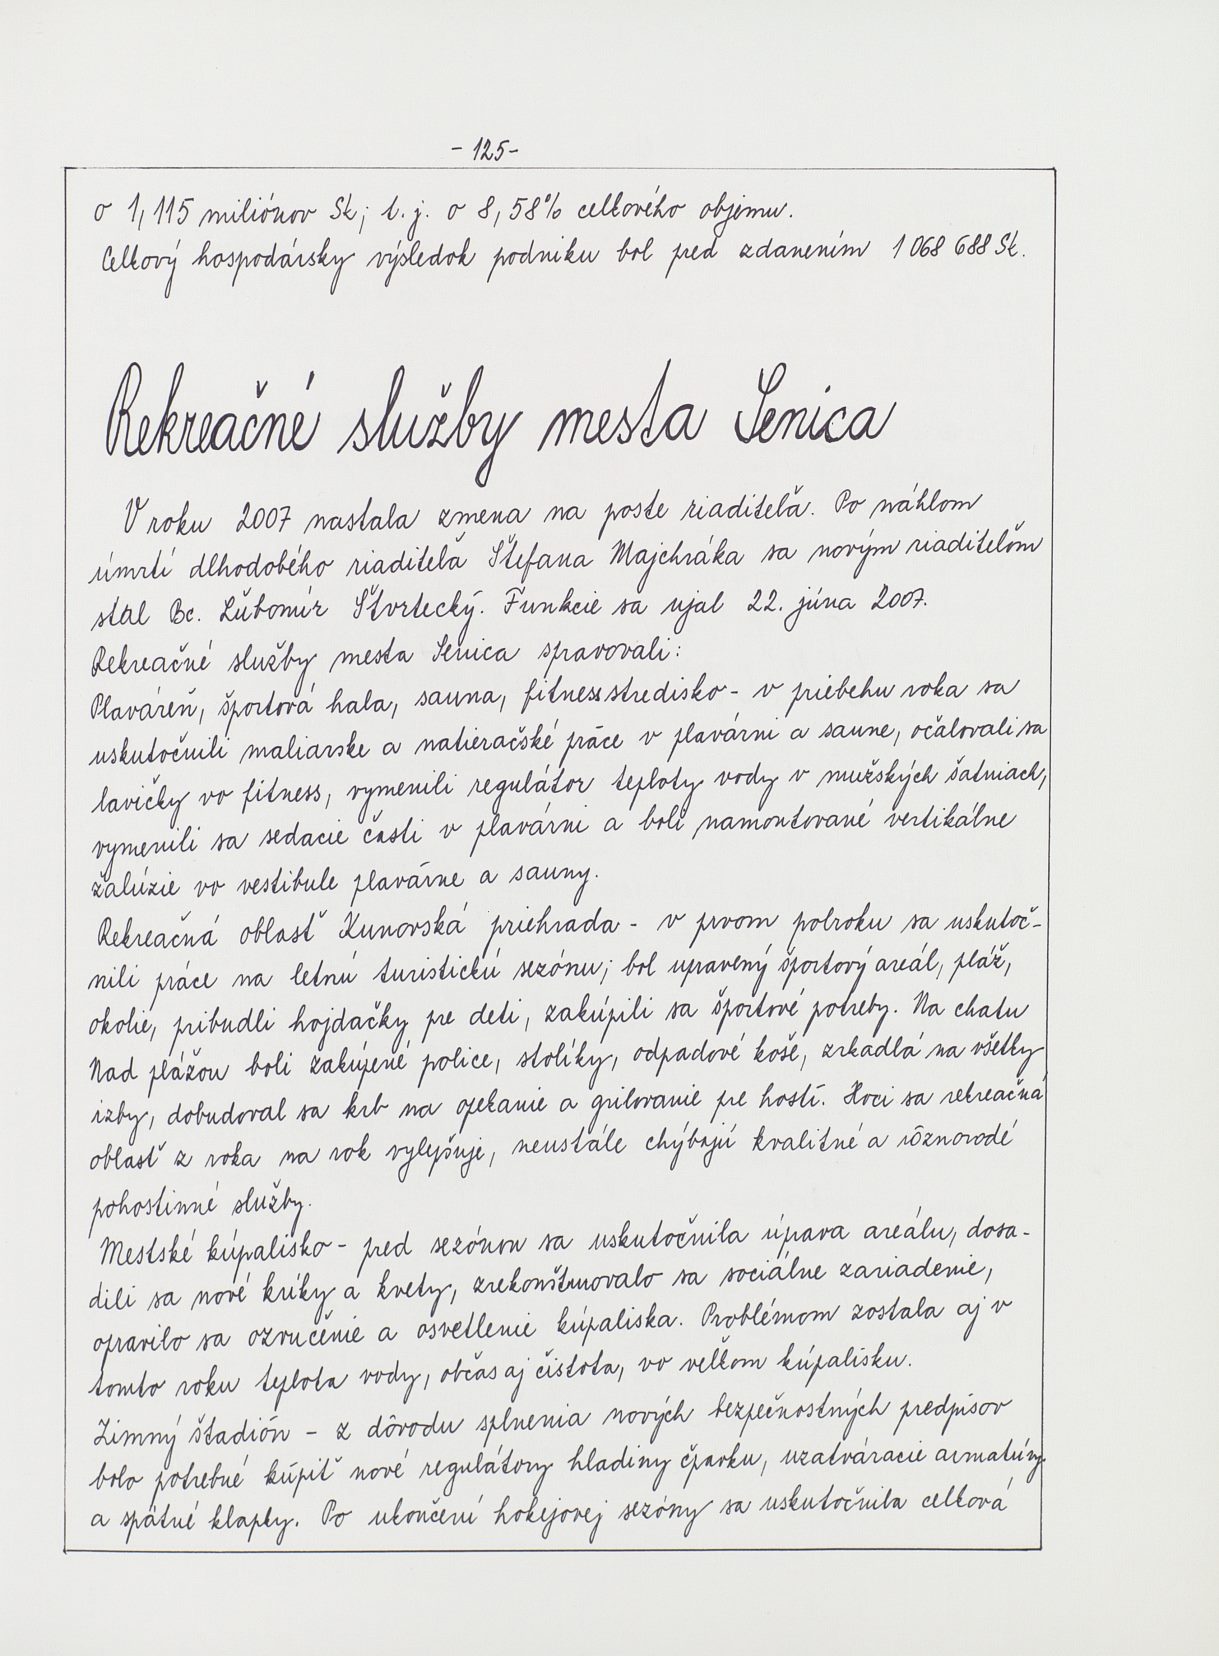 - 125 -
o 1,115 miliónov Sk; t. j. o 8,58% celkového objemu.
Celkový hospodársky výsledok podniku bol pred zdanením 1 068 688 Sk.
Rekreačné služby mesta Senica
V roku 2007 nastala zmena na poste riaditeľa. Po náhlom
úmrtí dlhodobého riaditeľa Štefana Majchráka sa novým riaditeľom
stal Bc. Ľubomír Štvrtecký. Funkcie sa ujal 22. júna 2007.
Rekreačné služby mesta Senica spravovali:
Plaváreň, športová hala, sauna, fitnessstredisko - v priebehu roka sa
uskutočnili maliarske a natieračské práce v plavárni a saune, očalovali sa
lavičky vo fitness, vymenili regulátor teploty vody v mužských šatniach,
vymenili sa sedacie časti v plavárni a boli namontované vertikálne
žalúzie vo vestibule plavárne a sauny.
Rekreačná oblasť Kunovská priehrada - v prvom polroku sa uskutoč-
nili práce na letnú turistickú sezónu; bol upravený športový areál, pláž,
okolie, pribudli hojdačky pre deti, zakúpili sa športové potreby. Na chatu
Nad plážou boli zakúpené police, stolíky, odpadové koše, zrkadlá na všetky
izby, dobudoval sa krb na opekanie a grilovanie pre hostí. Hoci sa rekreačná
oblasť z roka na rok vylepšuje, neustále chýbajú kvalitné a rôznorodé
pohostinné služby.
Mestské kúpalisko - pred sezónou sa uskutočnila úprava areálu, dosa-
dili sa nové kríky a kvety, zrekonštruovalo sa sociálne zariadenie,
opravilo sa ozvučenie a osvetlenie kúpaliska. Problémom zostala aj v
tomto roku teplota vody, občas aj čistota, vo veľkom kúpalisku.
Zimný štadión - z dôvodu splnenia nových bezpečnostných predpisov
bolo potrebné kúpiť nové regulátory hladiny čpavku, uzatváracie armatúry
a spätné klapky. Po ukončení hokejovej sezóny sa uskutočnila celková